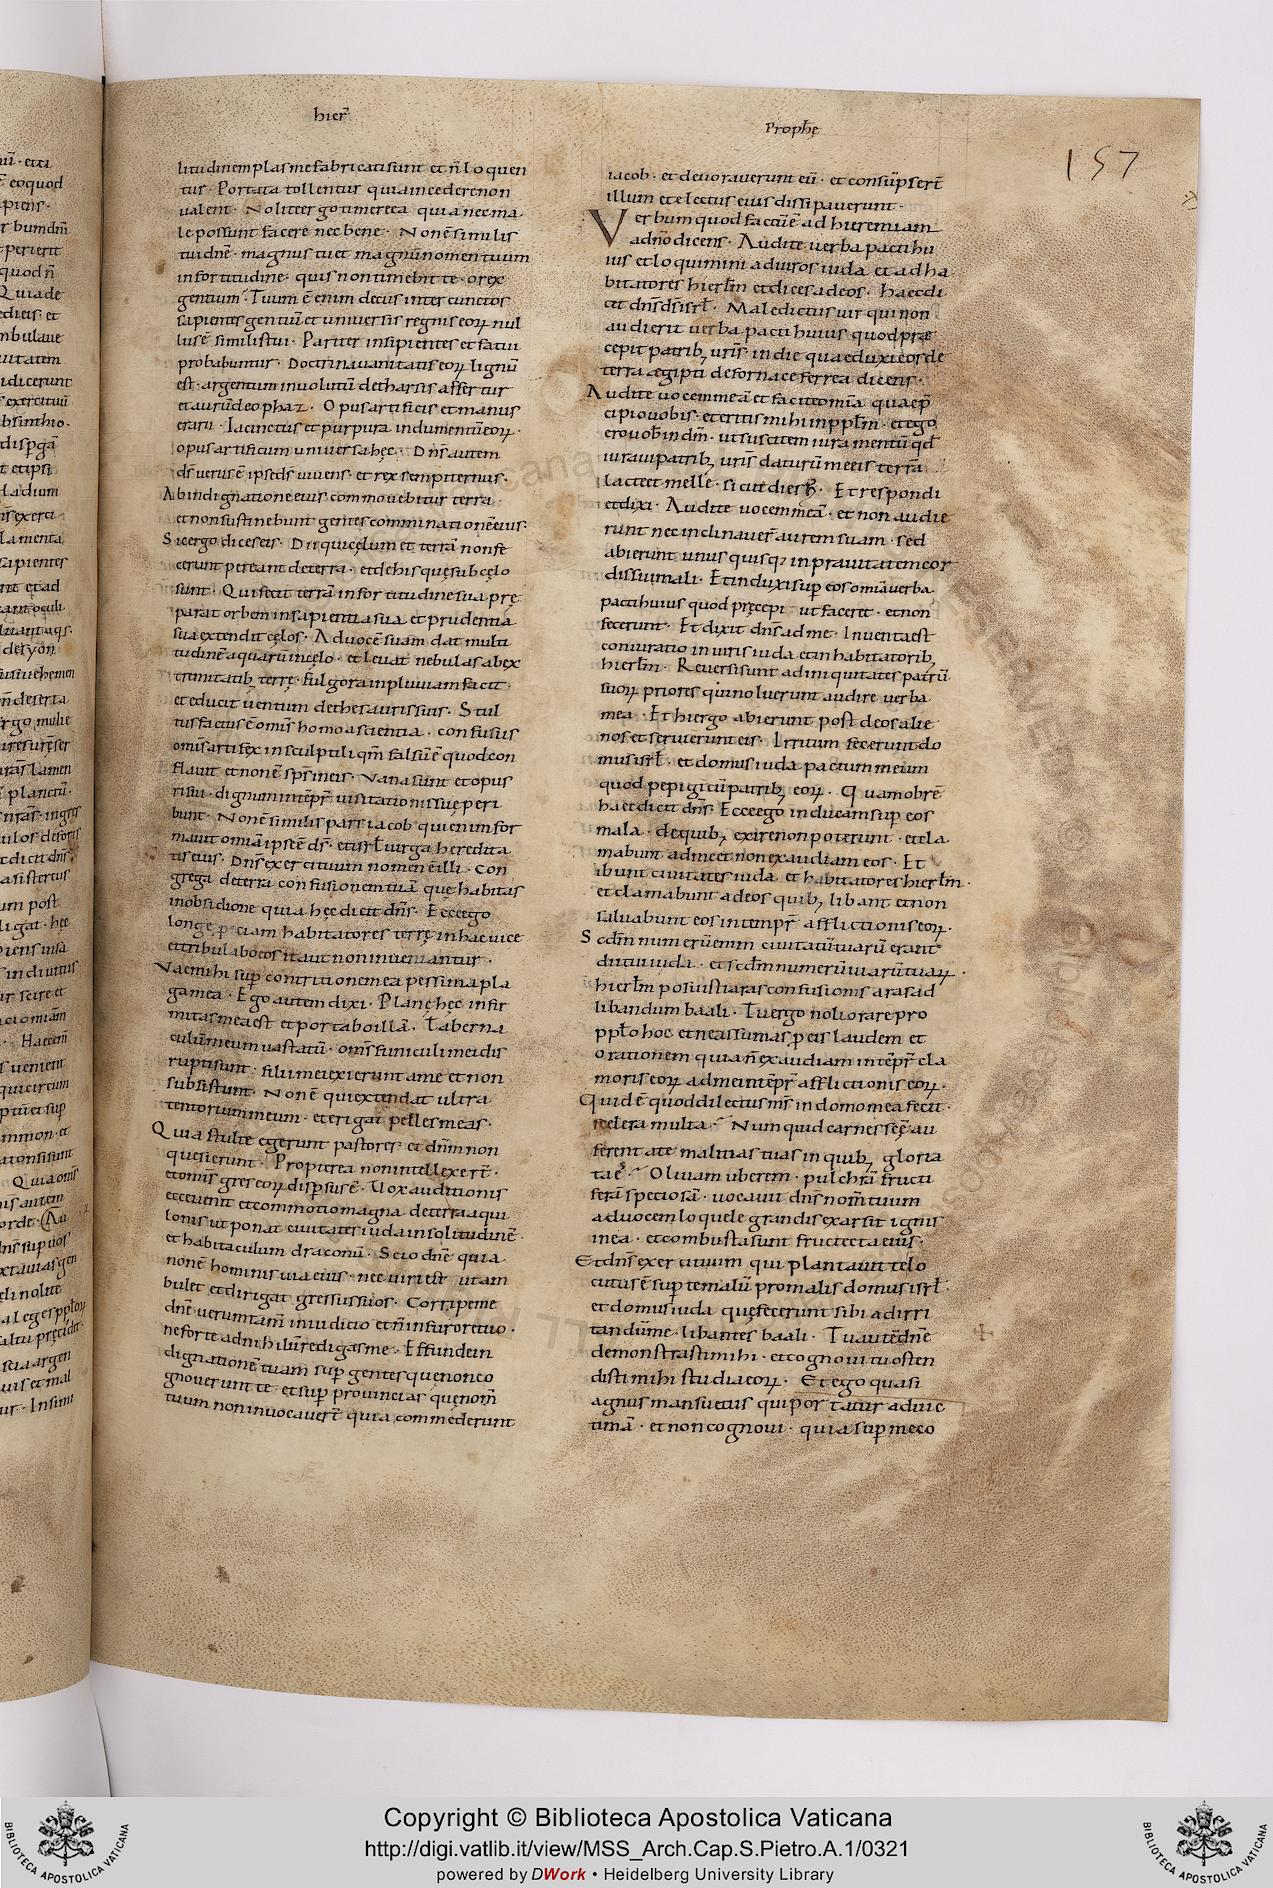 hier̄
Prophę
157
litudinem plasme fabricati sunt et n̄ loquen
tur · Portata tollentur quia incedere non
ualent · Nolite ergo timere ea quia nec ma
le possunt facere nec bene · Non ē similis
tui dn̄e · magnus tu et magnū nomen tuum
in fortitudine · quis non timebit te · o rex
gentium · Tuum ē enim decus inter cunctos
sapientes gentiū et uniuersis regnis eoꝝ nul
lus ē similis tui · Pariter insipientes et fatui
probabuntur · Doctrina uanitatis eoꝝ lignū
est · argentum inuolutū de tharsis affertur
et aurū de ophaz · Opus artificis et manus
erarii · Iacinctus et purpura indumentū eoꝝ ·
opus artificum uniuersa hęc · Dn̄s autem
ds̄ uerus ē ipse ds̄ uiuens · et rex sempiternus ·
Ab indignatione eius commouebitur terra ·
et non sustinebunt gentes comminationē eius ·
Sic ergo dicetis eis · Dii qui cęlum et terrā non fe
cerunt pereant de terra · et de his quę sub cęlo
sunt · Qui fecit terrā in fortitudine sua prę
parat orbem in sapientia sua et prudentia
sua extendit cęlos · Ad uocē suam dat multi
tudinē aquarū in cęlo · et leuat nebulas ab ex
tremitatibꝫ terrę · fulgora in pluuiam facit ·
et educit uentum de thesauris suis · Stul
tus factus ē omīs homo a scientia · confusus
omīs artifex in sculptili qm̄ falsū ē quod con
flauit et non ē sps̄ in eis · Vana sunt et opus
risui · dignum in tēpr̄ uisitationis suę peri
bunt · Non ē similis pars iacob qui enim for
mauit omīa ipse ē ds̄ · et isrł uirga heredita
tis eius · Dn̄s exercituum nomen ē illi · Con
grega de terra confusionem tuā que habitas
in obsidione quia hęc dicit dn̄s · Ecce ego
longe ꝓiciam habitatores terrę in hac uice
et tribulabo eos ita ut non inueniantur ·
Vae mihi sup̄ contritione mea pessima pla
ga mea · Ego autem dixi · Plane hęc infir
mitas mea est et portabo illā · Taberna
culū meum uastatū · omīs funiculi mei dis
rupti sunt · filii mei exierunt a me et non
subsistunt · Non ē qui extendat ultra
tentorium meum · et erigat pelles meas ·
Quia stulte egerunt pastores et dn̄m non
quesierunt · Propterea non intellexer̄t ·
et omīs grex eoꝝ dispersus ē · Uox auditionis
ecce uenit et commotio magna de terra aqui
lonis ut ponat ciuitates iuda in solitudinē ·
et habitaculum draconū · Scio dn̄e quia
non ē hominis uia eius · nec uiri est ut am
bulet et dirigat gressus suos · Corripe me
dn̄e uerumtam̄ in iudicio et n̄ in furore tuo ·
ne forte ad nihilū redigas me · Effunde in
dignationē tuam sup̄ gentes quę non co
gnouerunt te · et sup̄ prouincias quę nom̄
tuum non inuocauer̄t quia commederunt
iacob · et deuorauerunt eū · et consūpser̄t
illum et electus eius dissipauerunt ·
Verbum quod factū ē ad hieremiam
a dn̄o dicens · Audite uerba pacti hu
ius et loquimini ad uiros iuda et ad ha
bitatores hierłm et dices ad eos · Haec di
cit dn̄s ds̄ isrł · Maledictus uir qui non
audierit uerba pacti huius quod præ
cepit patribꝫ uris̄ in die qua eduxi eos de
terra ægipti de fornace ferrea dicens ·
Audite uocem meā et facite omīa quae p̄
cipio uobis · et eritis mihi in ppłm · et ego
ero uob̄ in dm̄ · ut suscitem iuramentū qd̄
iuraui patribꝫ uris̄ daturū me eis terrā
lacte et melle · sicut dies ħ · Et respondi
et dixi · Audite uocem meā · et non audie
runt nec inclinauer̄ aurem suam · sed
abierunt unus quisqꝫ in prauitatem cor
dis sui mali · Et induxi sup̄ eos omīa uerba
pacti huius quod pręcepi · ut facerēt · et non
fecerunt · Et dixit dn̄s ad me · Inuenta est
coniuratio in uiris iuda et in habitatoribꝫ
hierłm · Reuersi sunt ad iniquitates patrū
suoꝝ priores qui noluerunt audire uerba
mea · Et hi ergo abierunt post deos alie
nos et seruierunt eis · Irritum fecerunt do
mus isrł · et domus iuda pactum meum
quod pepigi cū patribꝫ eoꝝ · Quam obrē
haec dicit dn̄s · Ecce ego inducam sup̄ eos
mala · de quibꝫ exire non poterunt · et cla
mabunt ad me et non exaudiam eos · Et
ibunt ciuitates iuda et habitatores hierłm ·
et clamabunt ad eos quibꝫ libant et non
saluabunt eos in tempr̄ afflictionis eoꝝ ·
Scdm̄ numerū enim ciuitatū tuarū erant
dii tui iuda · et scdm̄ numerū uiarū tuaꝝ ·
hierłm posuisti aras confusionis aras ad
libandum baali · Tu ergo noli orare pro
ppło hoc et ne assumas ꝓ eis laudem et
orationem quia n̄ exaudiam in tēpr̄ cla
moris eoꝝ ad me in tēpr̄ afflictionis eoꝝ ·
Quid ē quod dilectus ms̄ in domo mea fecit
scelera multa · Numquid carnes scę̄ au
ferent a te malitias tuas in quibꝫ gloria
ta es · Oliuam uberem · pulchrā fructi
ferā speciosā · uocauit dn̄s nom̄ tuum
ad uocem loquele grandis exarsit ignis
in ea · et combusta sunt fructecta eius ·
Et dn̄s exercituum qui plantauit te lo
cutus ē sup̄ te malū pro malis domus isrł ·
et domus iuda quę fecerunt sibi ad irri
tandū me · libantes baali · Tu autē dn̄e
demonstrasti mihi · et cognoui tu osten
disti mihi studia eoꝝ · Et ego quasi
agnus mansuetus qui portatur ad uic
timā · et non cognoui · quia sup̄ me co
Copyright © Biblioteca Apostolica Vaticana
http://digi.vatlib.it/view/MSS_Arch.Cap.S.Pietro.A.1/0321
powered by DWork • Heidelberg University Library
BIBLIOTECA APOSTOLICA VATICANA
BIBLIOTECA APOSTOLICA VATICANA